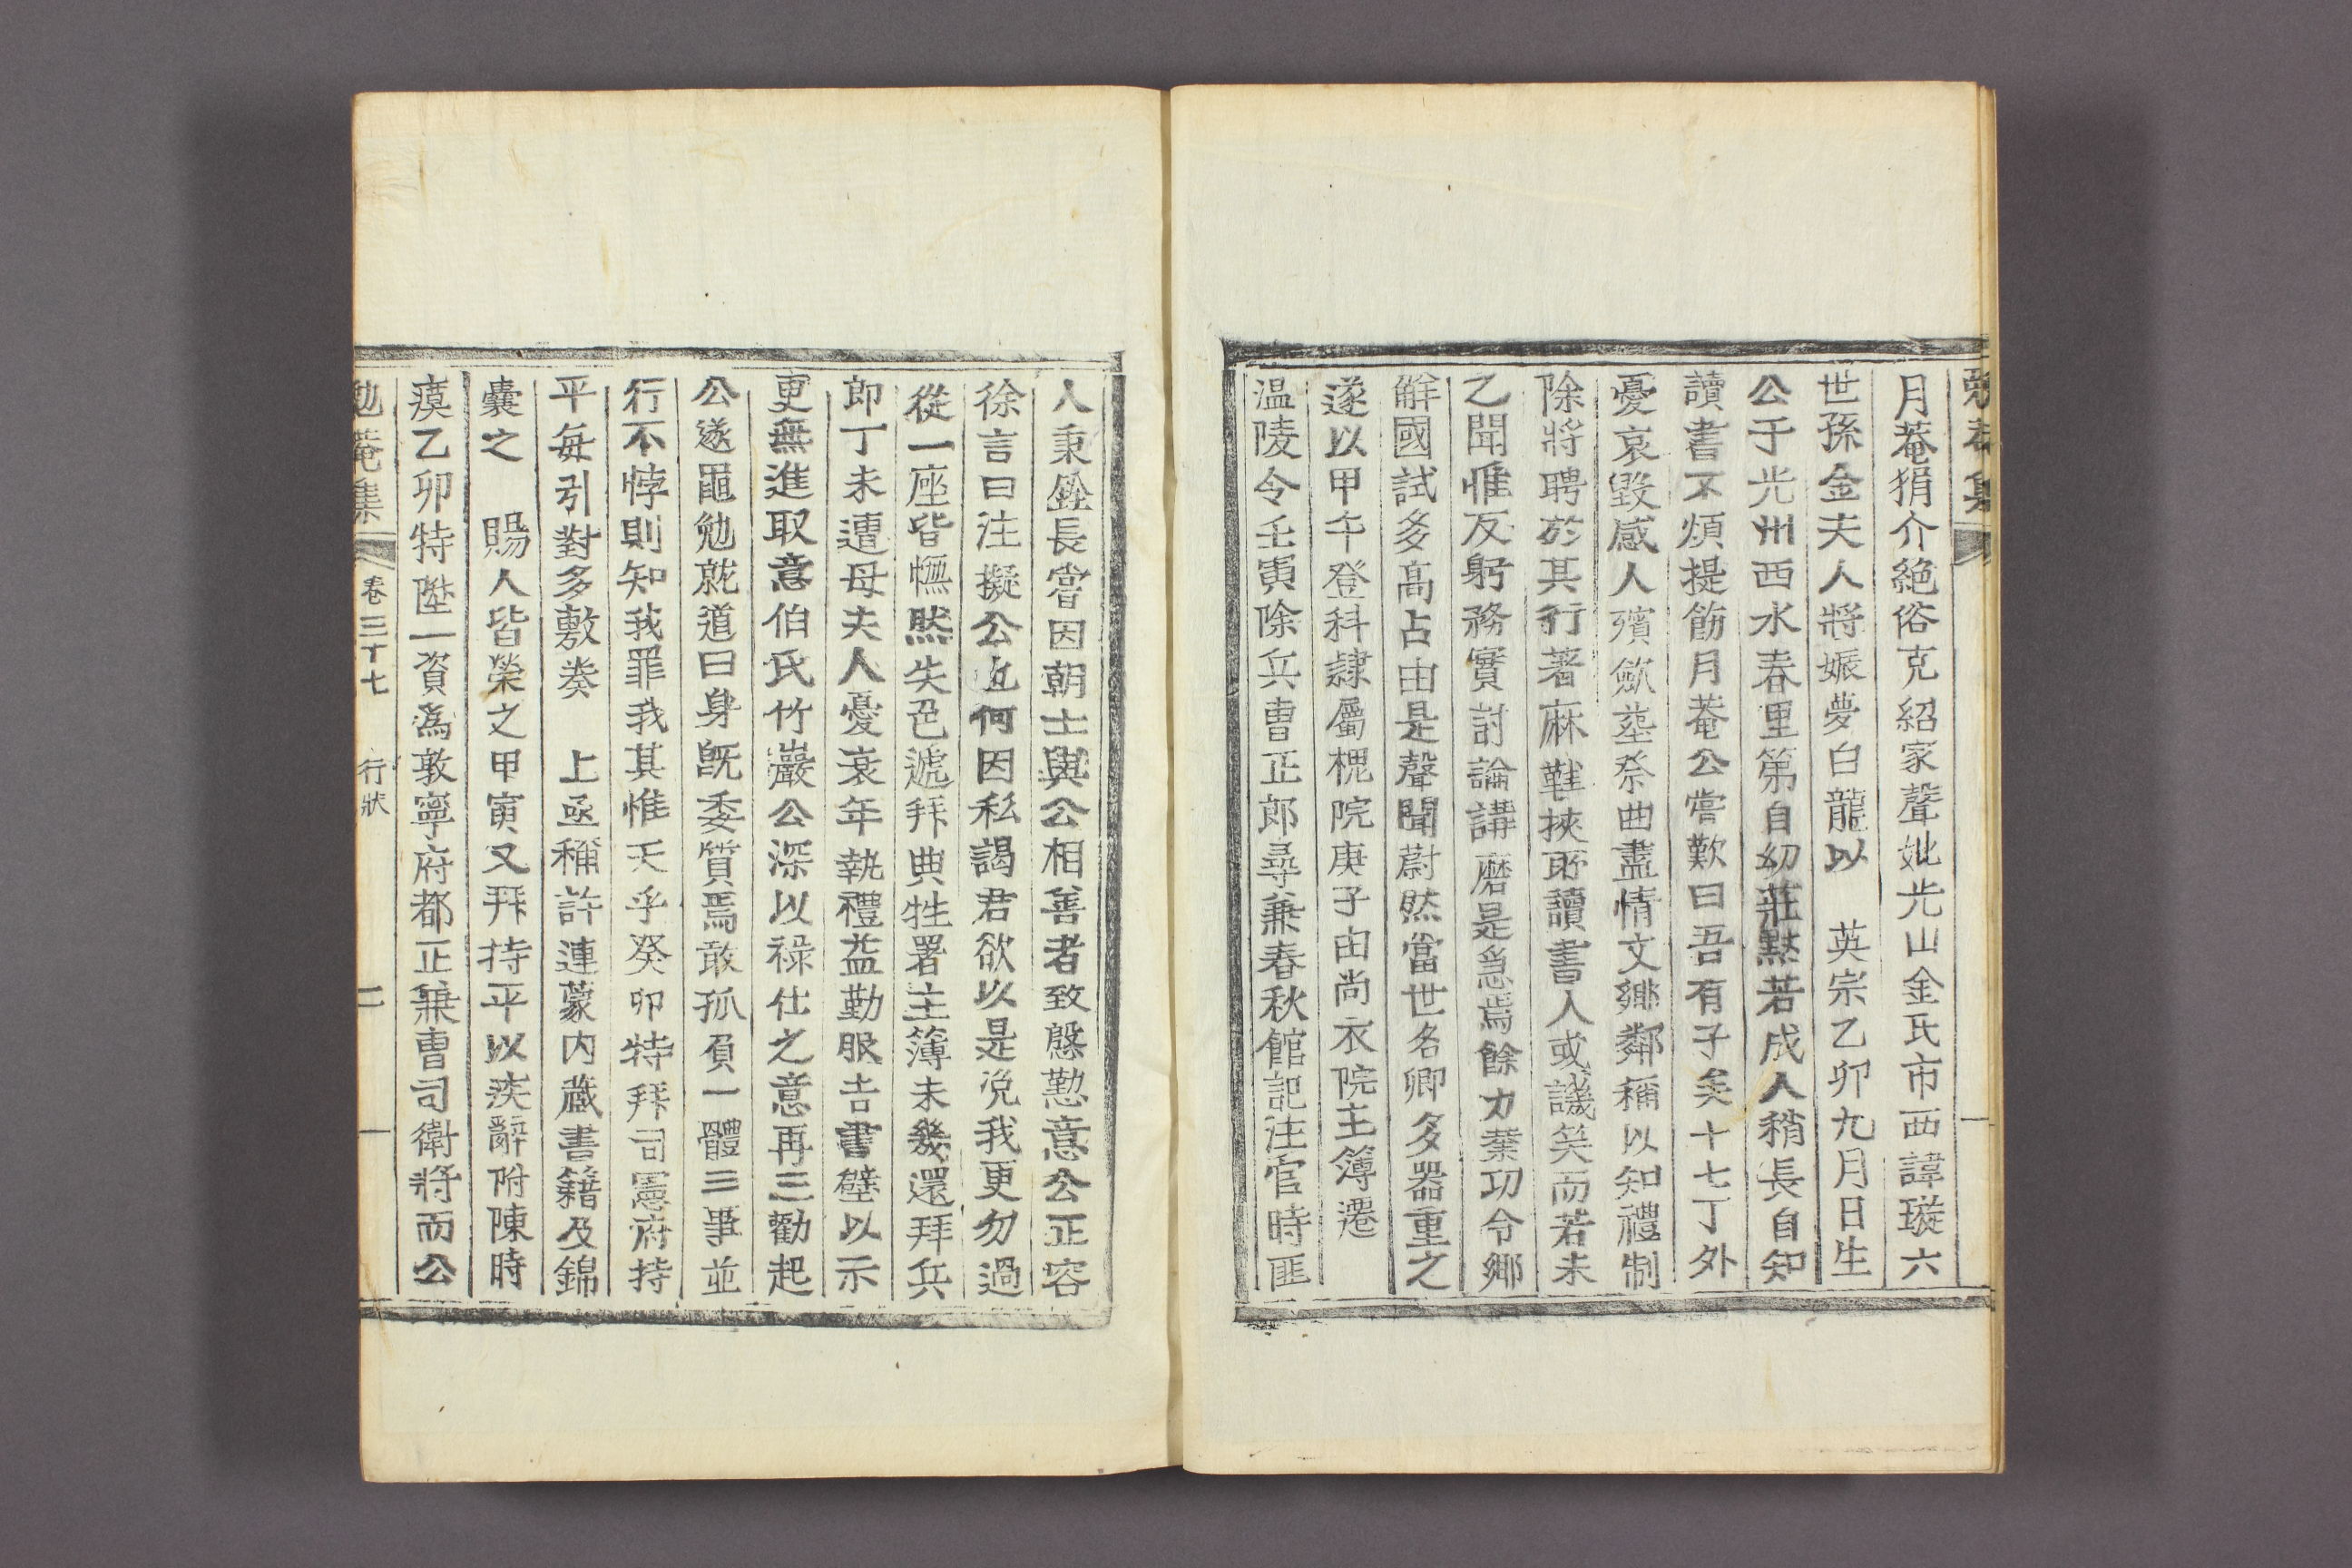 勉菴集
一
月菴狷介絶俗克紹家聲妣光山金氏市西諱璇六
世孫金夫人將娠夢白龍以 英宗乙卯九月日生
公于光州西水春里第自幼莊黙若成人稍長自知
讀書不煩提飭月菴公嘗歎曰吾有子矣十七丁外
憂哀毀感人殯歛塟祭曲盡情文鄉鄰稱以知禮制
除將聘於其行著麻鞋挾所讀書人或譏笑而若未
之聞惟反躬務實討論講磨是急焉餘力業功令鄉
解國試多高占由是聲聞蔚然當世名卿多器重之
遂以甲午登科隷屬槐院庚子由尚衣院主簿遷
温陵令壬寅除兵曹正郎尋兼春秋館記注官時匪
人秉銓長嘗因朝士與公相善者致慇懃意公正容
徐言曰注擬公也何因私謁君欲以是浼我更勿過
從一座皆憮然失色遞拜典牲署主簿未幾還拜兵
郎丁未遭母夫人憂衰年執禮益勤服吉書壁以示
更無進取意伯氏竹巖公深以禄仕之意再三勸起
公遂黽勉就道曰身旣委質焉敢孤負一體三事並
行不悖則知我罪我其惟天乎癸卯特拜司憲府持
平每引對多敷奏 上亟稱許連蒙内藏書籍及錦
囊之 賜人皆榮之甲寅又拜持平以疾辭附陳時
瘼乙卯特陞一資爲敦寧府都正兼曹司衛將而公
勉菴集 卷三十七 行狀 二